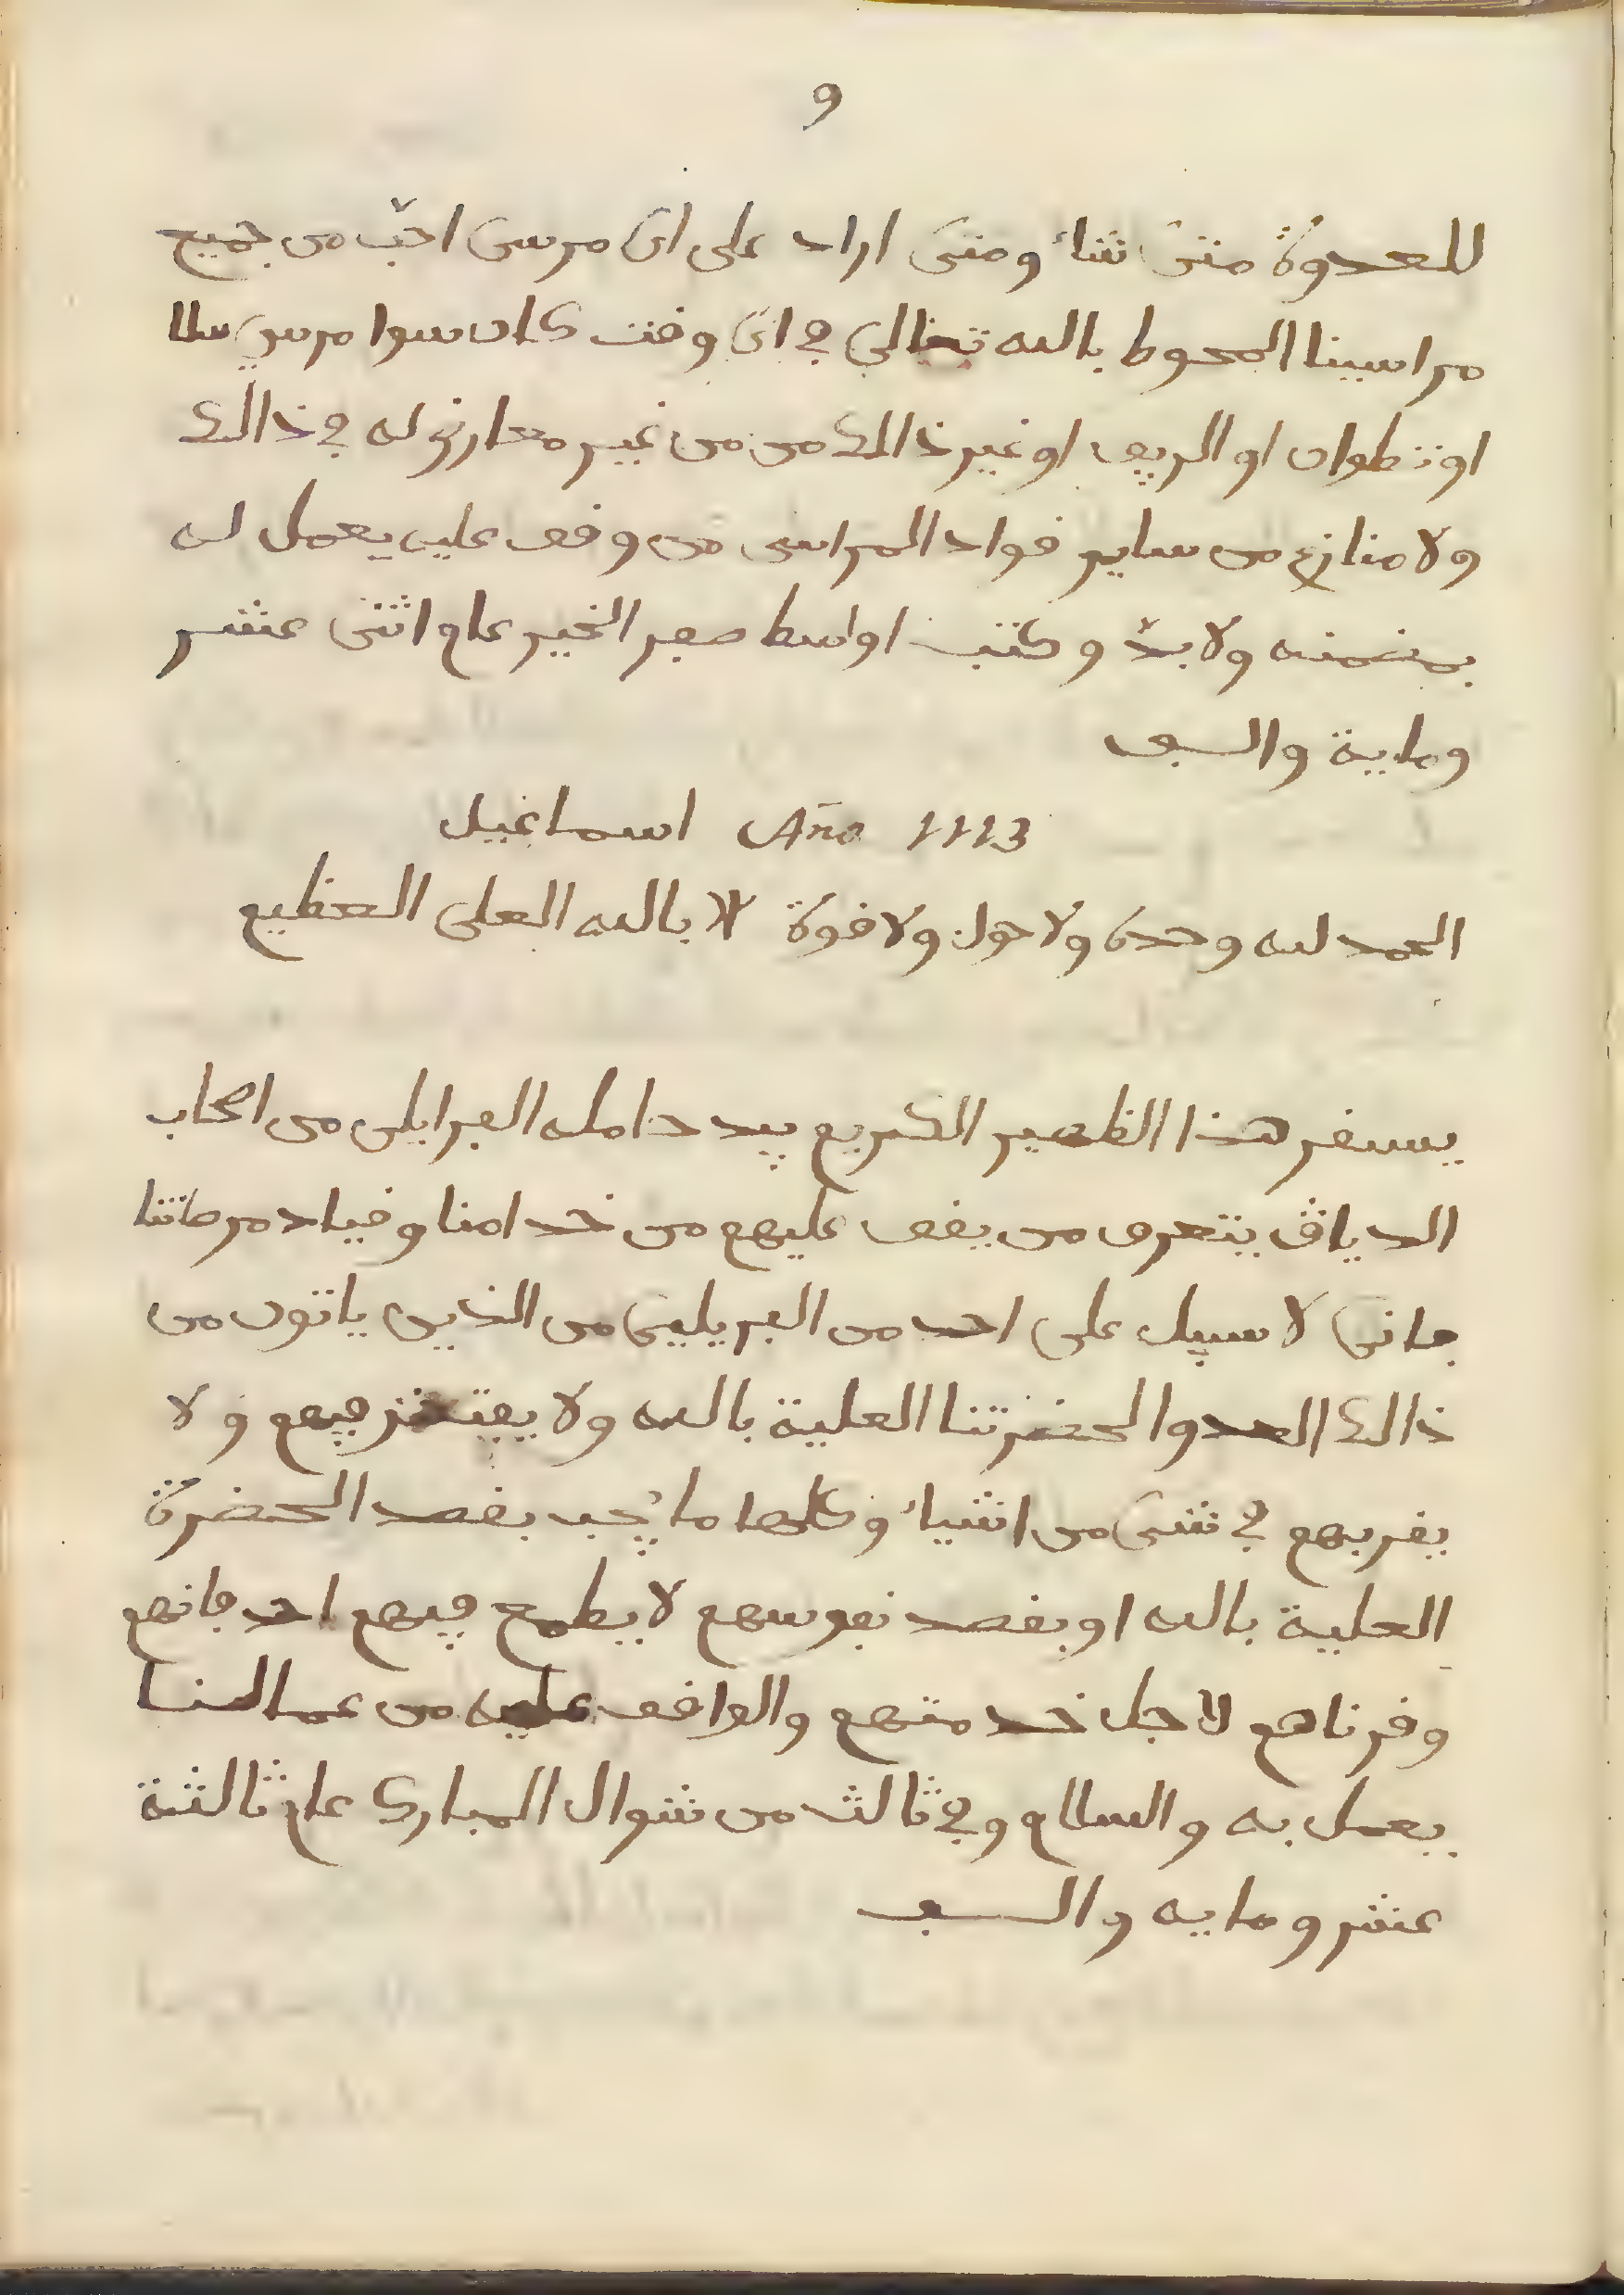 9
للعدوة متى شاء ومتى اراد على اى مرسى احبّ من جميع
مراسينا المحوط بالله تعالى في اى وقت كان سوا مرسى سلا
او تطوان او الريف او غير ذالك من من غير معارض له في ذالك
ولا منازع من ساير قواد المراسى من وقف عليه يعمل له
بمضمنه ولا بدّ وكتب اواسط صفر الخير عام اثنى عشر
وماية والف
اسماعيل Año 1113
الحمد لله وحده ولا حول ولا قوة الا بالله العلى العظيم
يستقر هذا الظهير الكريم بيد حامله الفرايلى من اصحاب
الدياڧ يتعرف من يقف عليهم من خدامنا وقياد مرضاتنا
فانى لا سبيل على احد من الفريلين من الذين ياتون من
ذالك العدوا لحضرتنا العلية بالله ولا فيهم ولا
يقربهم في شى من اشياء وكلها ما يجب بقصد الحضرة
العلية بالله او بقصد نفوسهم لا يطمع فيهم احد فانهم
وقرناهم لاجل خدمتهم والواقف عليه من عمالنا
يعمل به والسلام وفي ثالث من شوال المبارك عام ثالثة
عشر ومايه والف